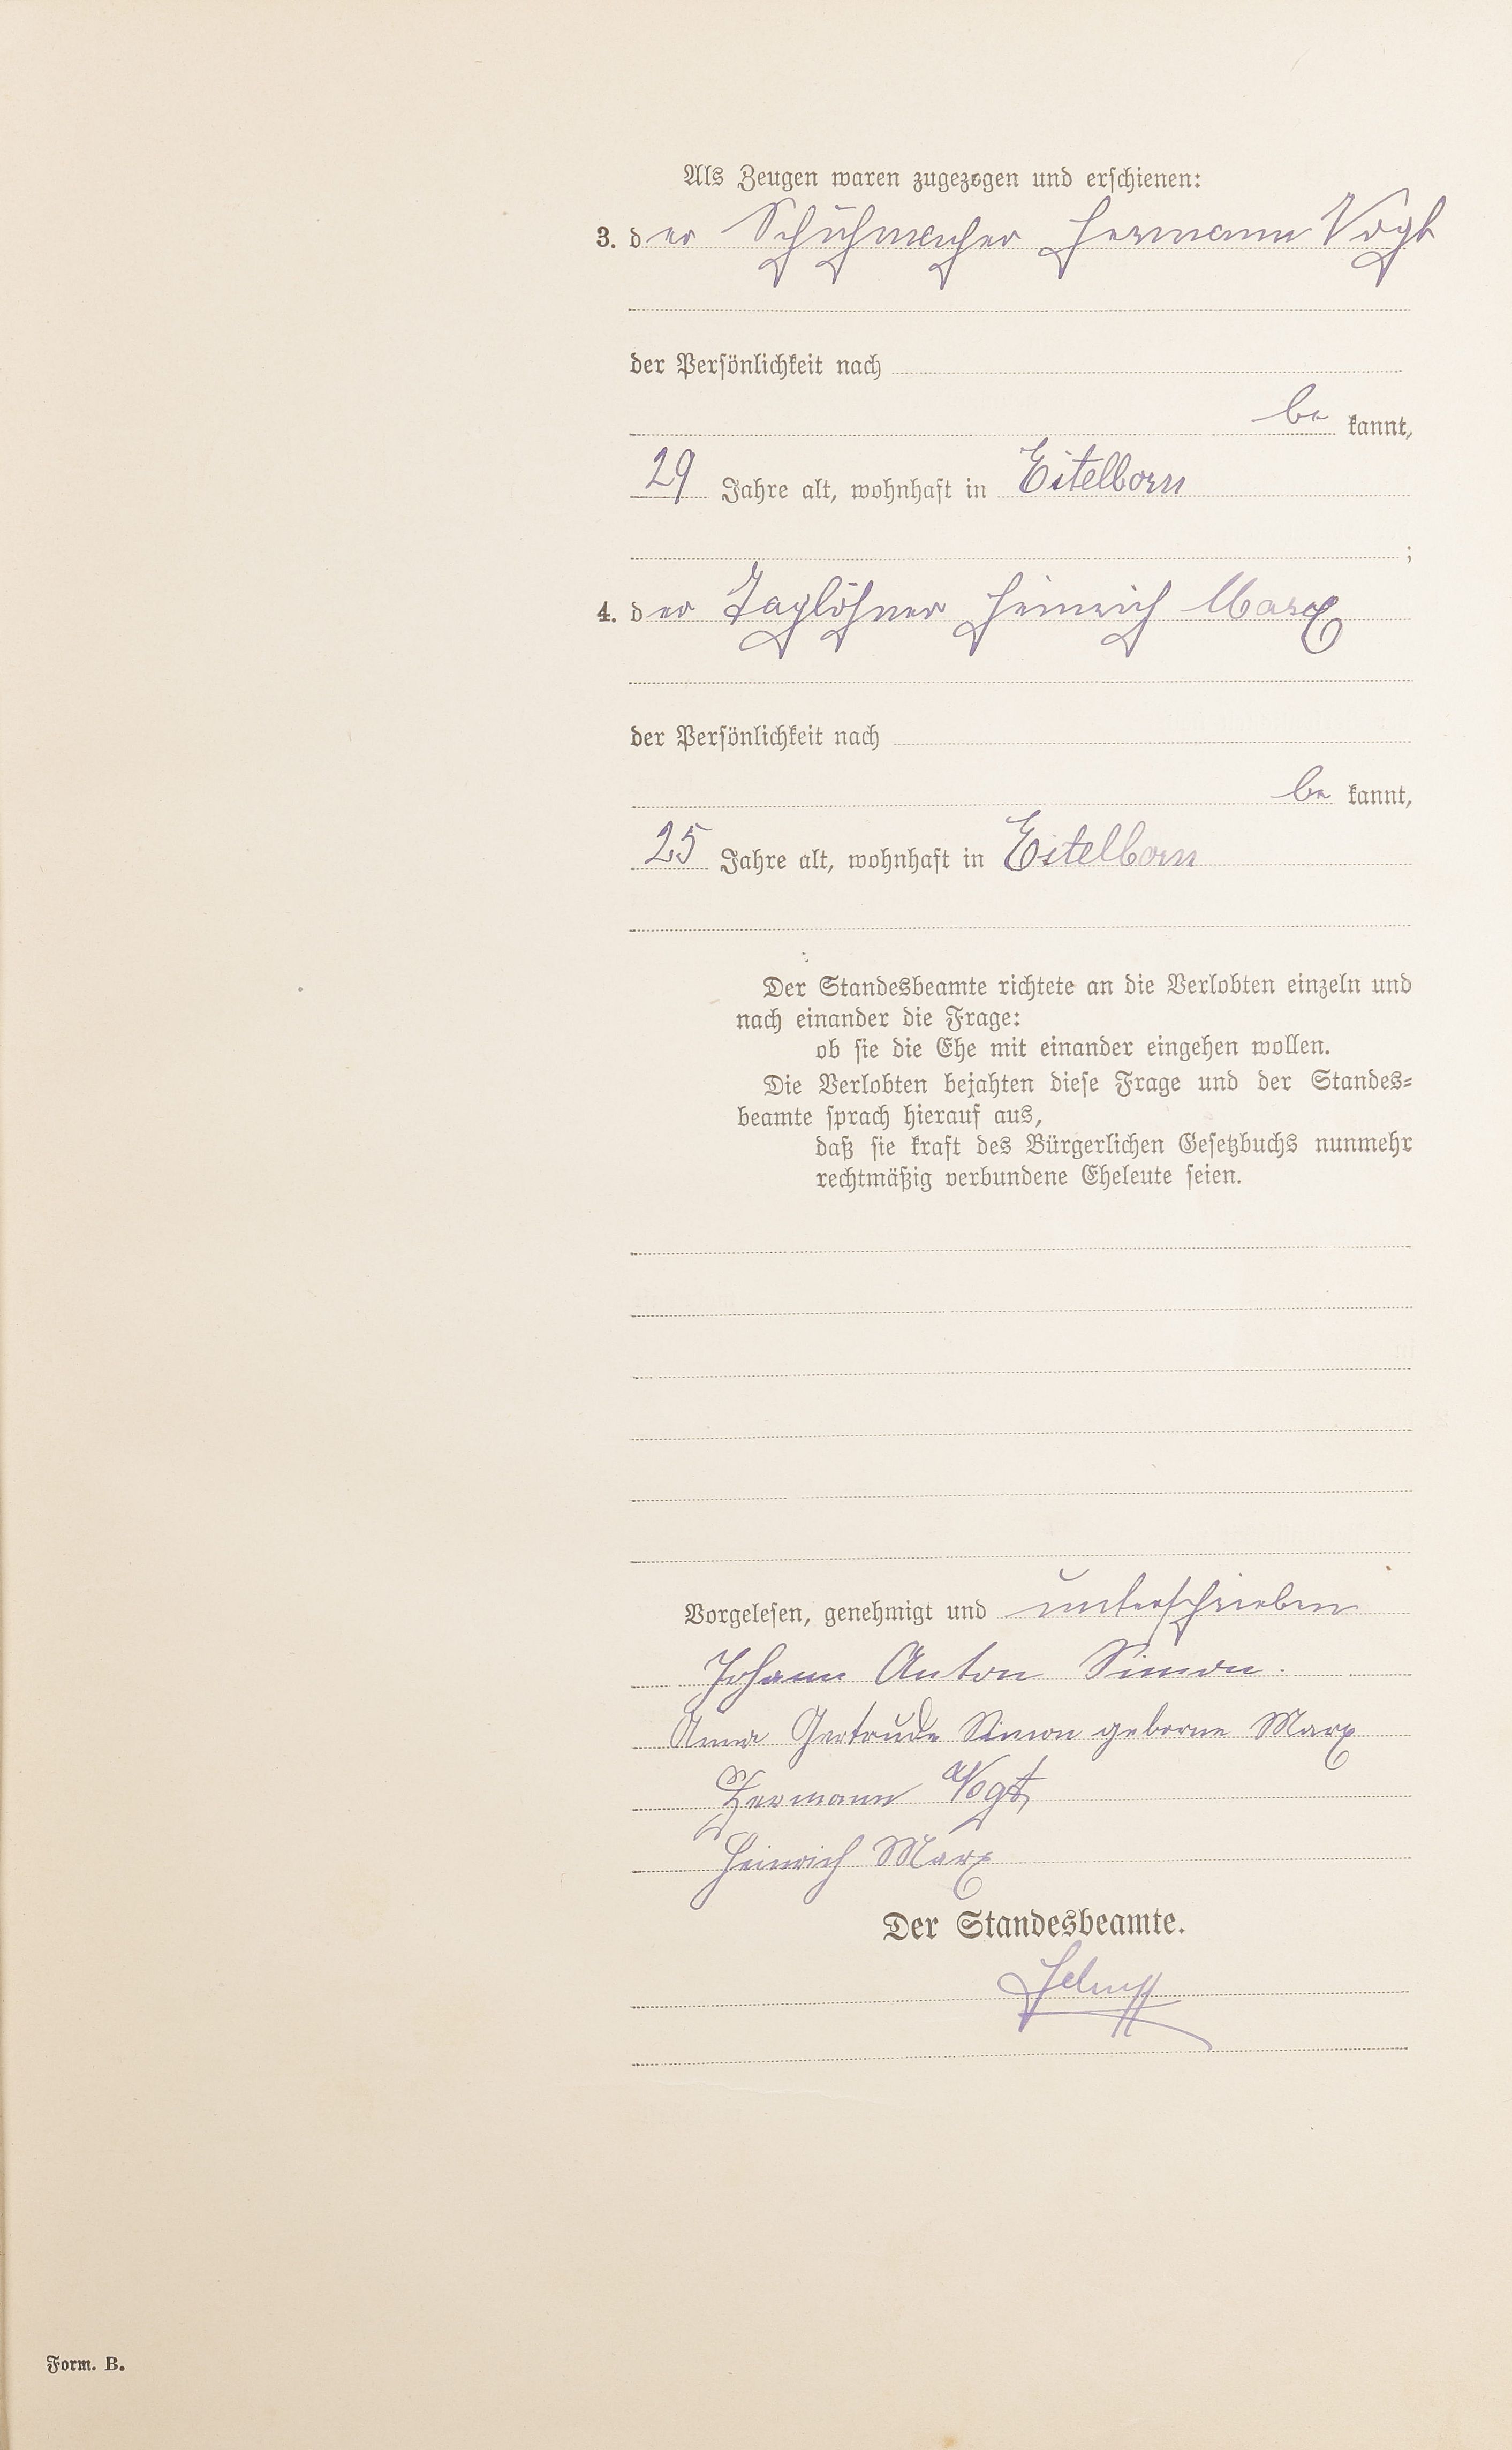 Als Zeugen waren zugezogen und erschienen:
3. der Schuhmacher Hermann Vogt
der Persönlichkeit nach
be kannt,
29 Jahre alt, wohnhaft in Eitelborn
;
4. der Taglöhner Heinrich Marx
der Persönlichkeit nach
be kannt,
25 Jahre alt, wohnhaft in Eitelborn
Der Standesbeamte richtete an die Verlobten einzeln und
nach einander die Frage:
ob sie die Ehe mit einander eingehen wollen.
Die Verlobten bejahten diese Frage und der Standes-
beamte sprach hierauf aus,
daß sie kraft des Bürgerlichen Gesetzbuchs nunmehr
rechtmäßig verbundene Eheleute seien.
Vorgelesen, genehmigt und unterschrieben
Johann Anton Simon.
Anna Gertrude Simon geborne Marx
Hermann Vogt
Heinrich Marx
Der Standesbeamte.
Form. B.